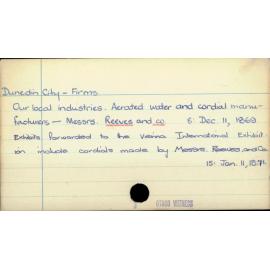 Dunedin City - Firms.
Our local industries. Aerated water and cordial manu-
facturers — Messrs. Reeves and co. 5: Dec. 11, 1869
Exhibits forwarded to the Vienna International Exhibit-
ion include cordials made by Messrs. Reeves and Co.
15: Jan. 11, 187
OTAGO WITNESS